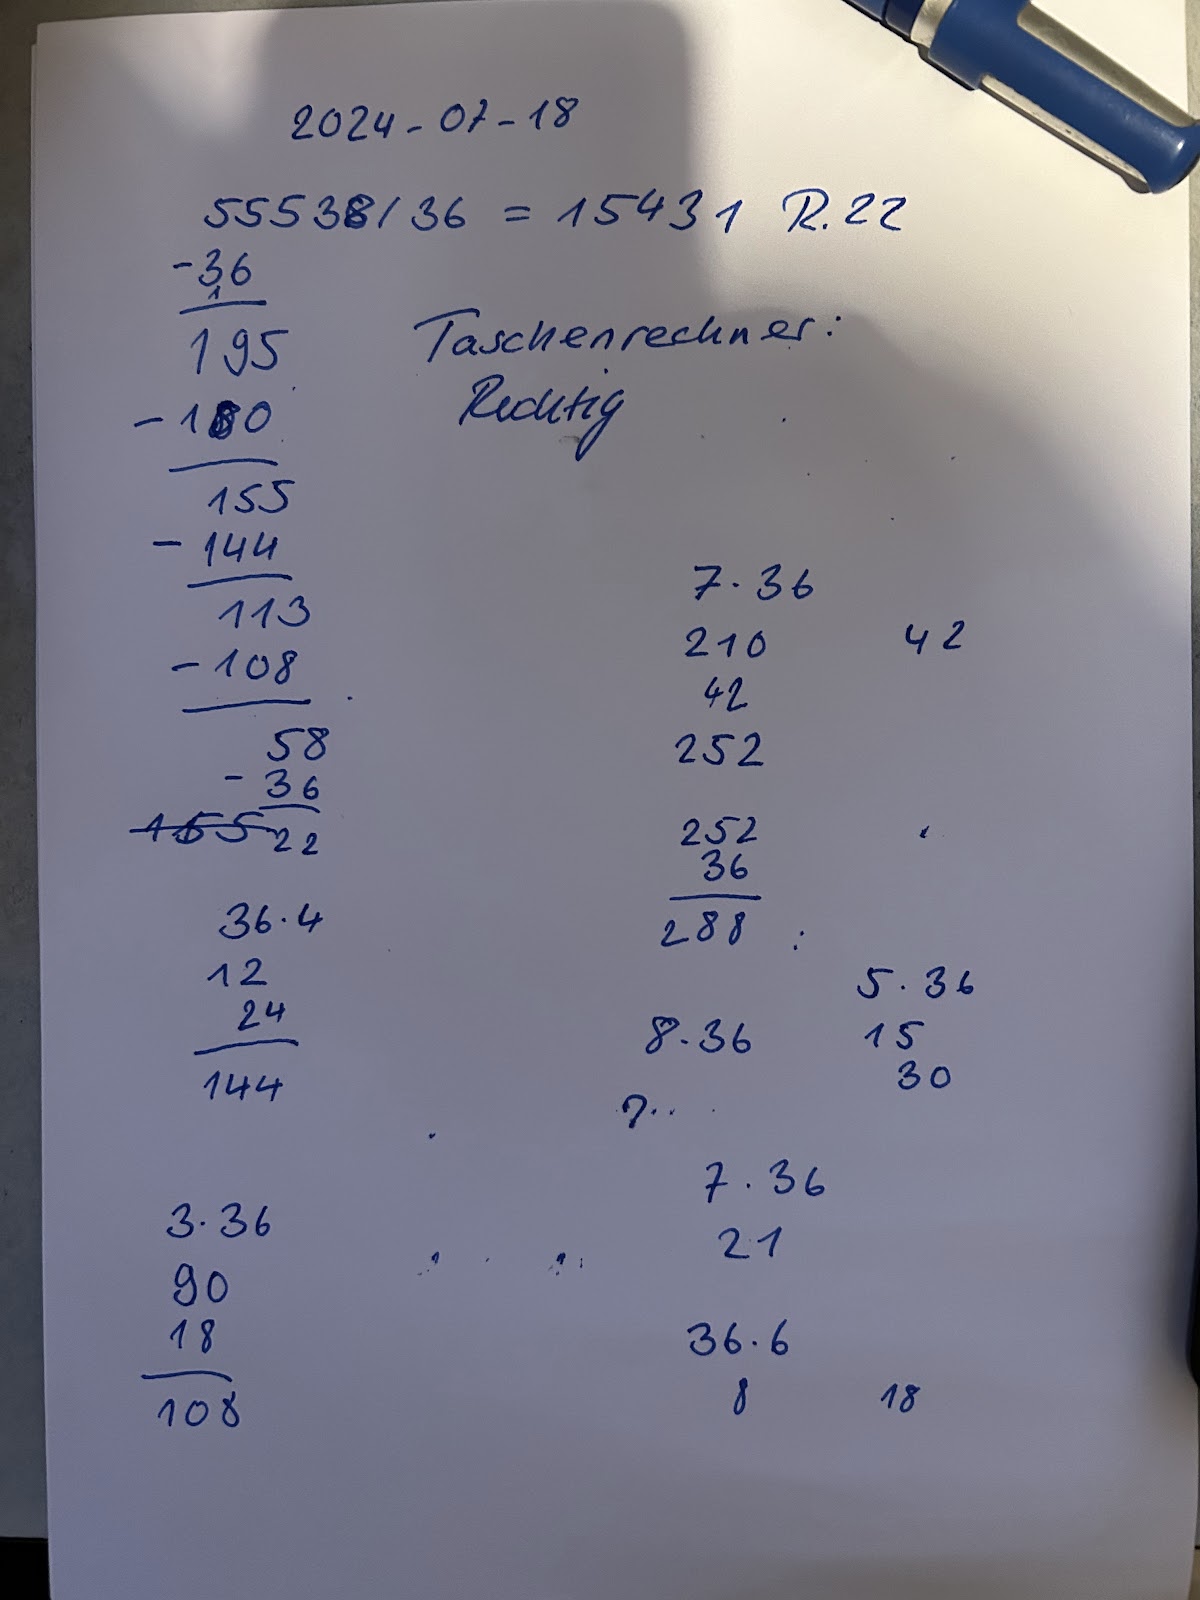 2024-07-18
55538/36 = 15431 R.22
-36
1
195
-180
155
-144
113
-108
58
-36
155 22
Taschenrechner:
Richtig
7·36
210 42
42
252
252
36
288
36·4
12
24
144
5·36
15
30
8·36
7·36
21
3·36
90
18
108
36·6
8 18